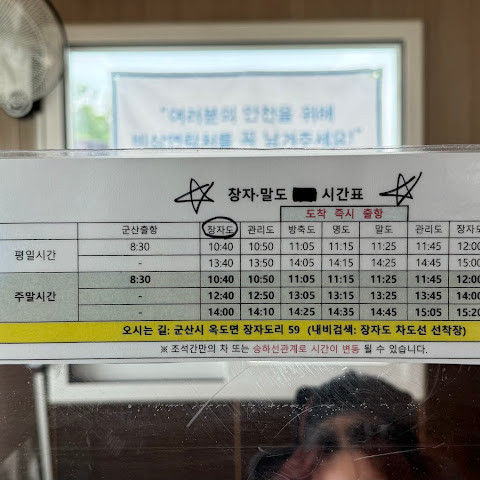 "여러분의 안전을 위해
비상연락처를 꼭 남겨주세요!"
장자·말도 시간표
도착 즉시 출항
군산출항 장자도 관리도 방축도 명도 말도 관리도 장자도
평일시간 8:30 10:40 10:50 11:05 11:15 11:25 11:45 12:00
- 13:40 13:50 14:05 14:15 14:25 14:45 15:00
주말시간 8:30 10:40 10:50 11:05 11:15 11:25 11:45 12:00
- 12:40 12:50 13:05 13:15 13:25 13:45 14:00
- 14:00 14:10 14:25 14:35 14:45 15:05 15:20
오시는 길: 군산시 옥도면 장자도리 59 (내비검색: 장자도 차도선 선착장)
※ 조석간만의 차 또는 승하선관계로 시간이 변동 될 수 있습니다.